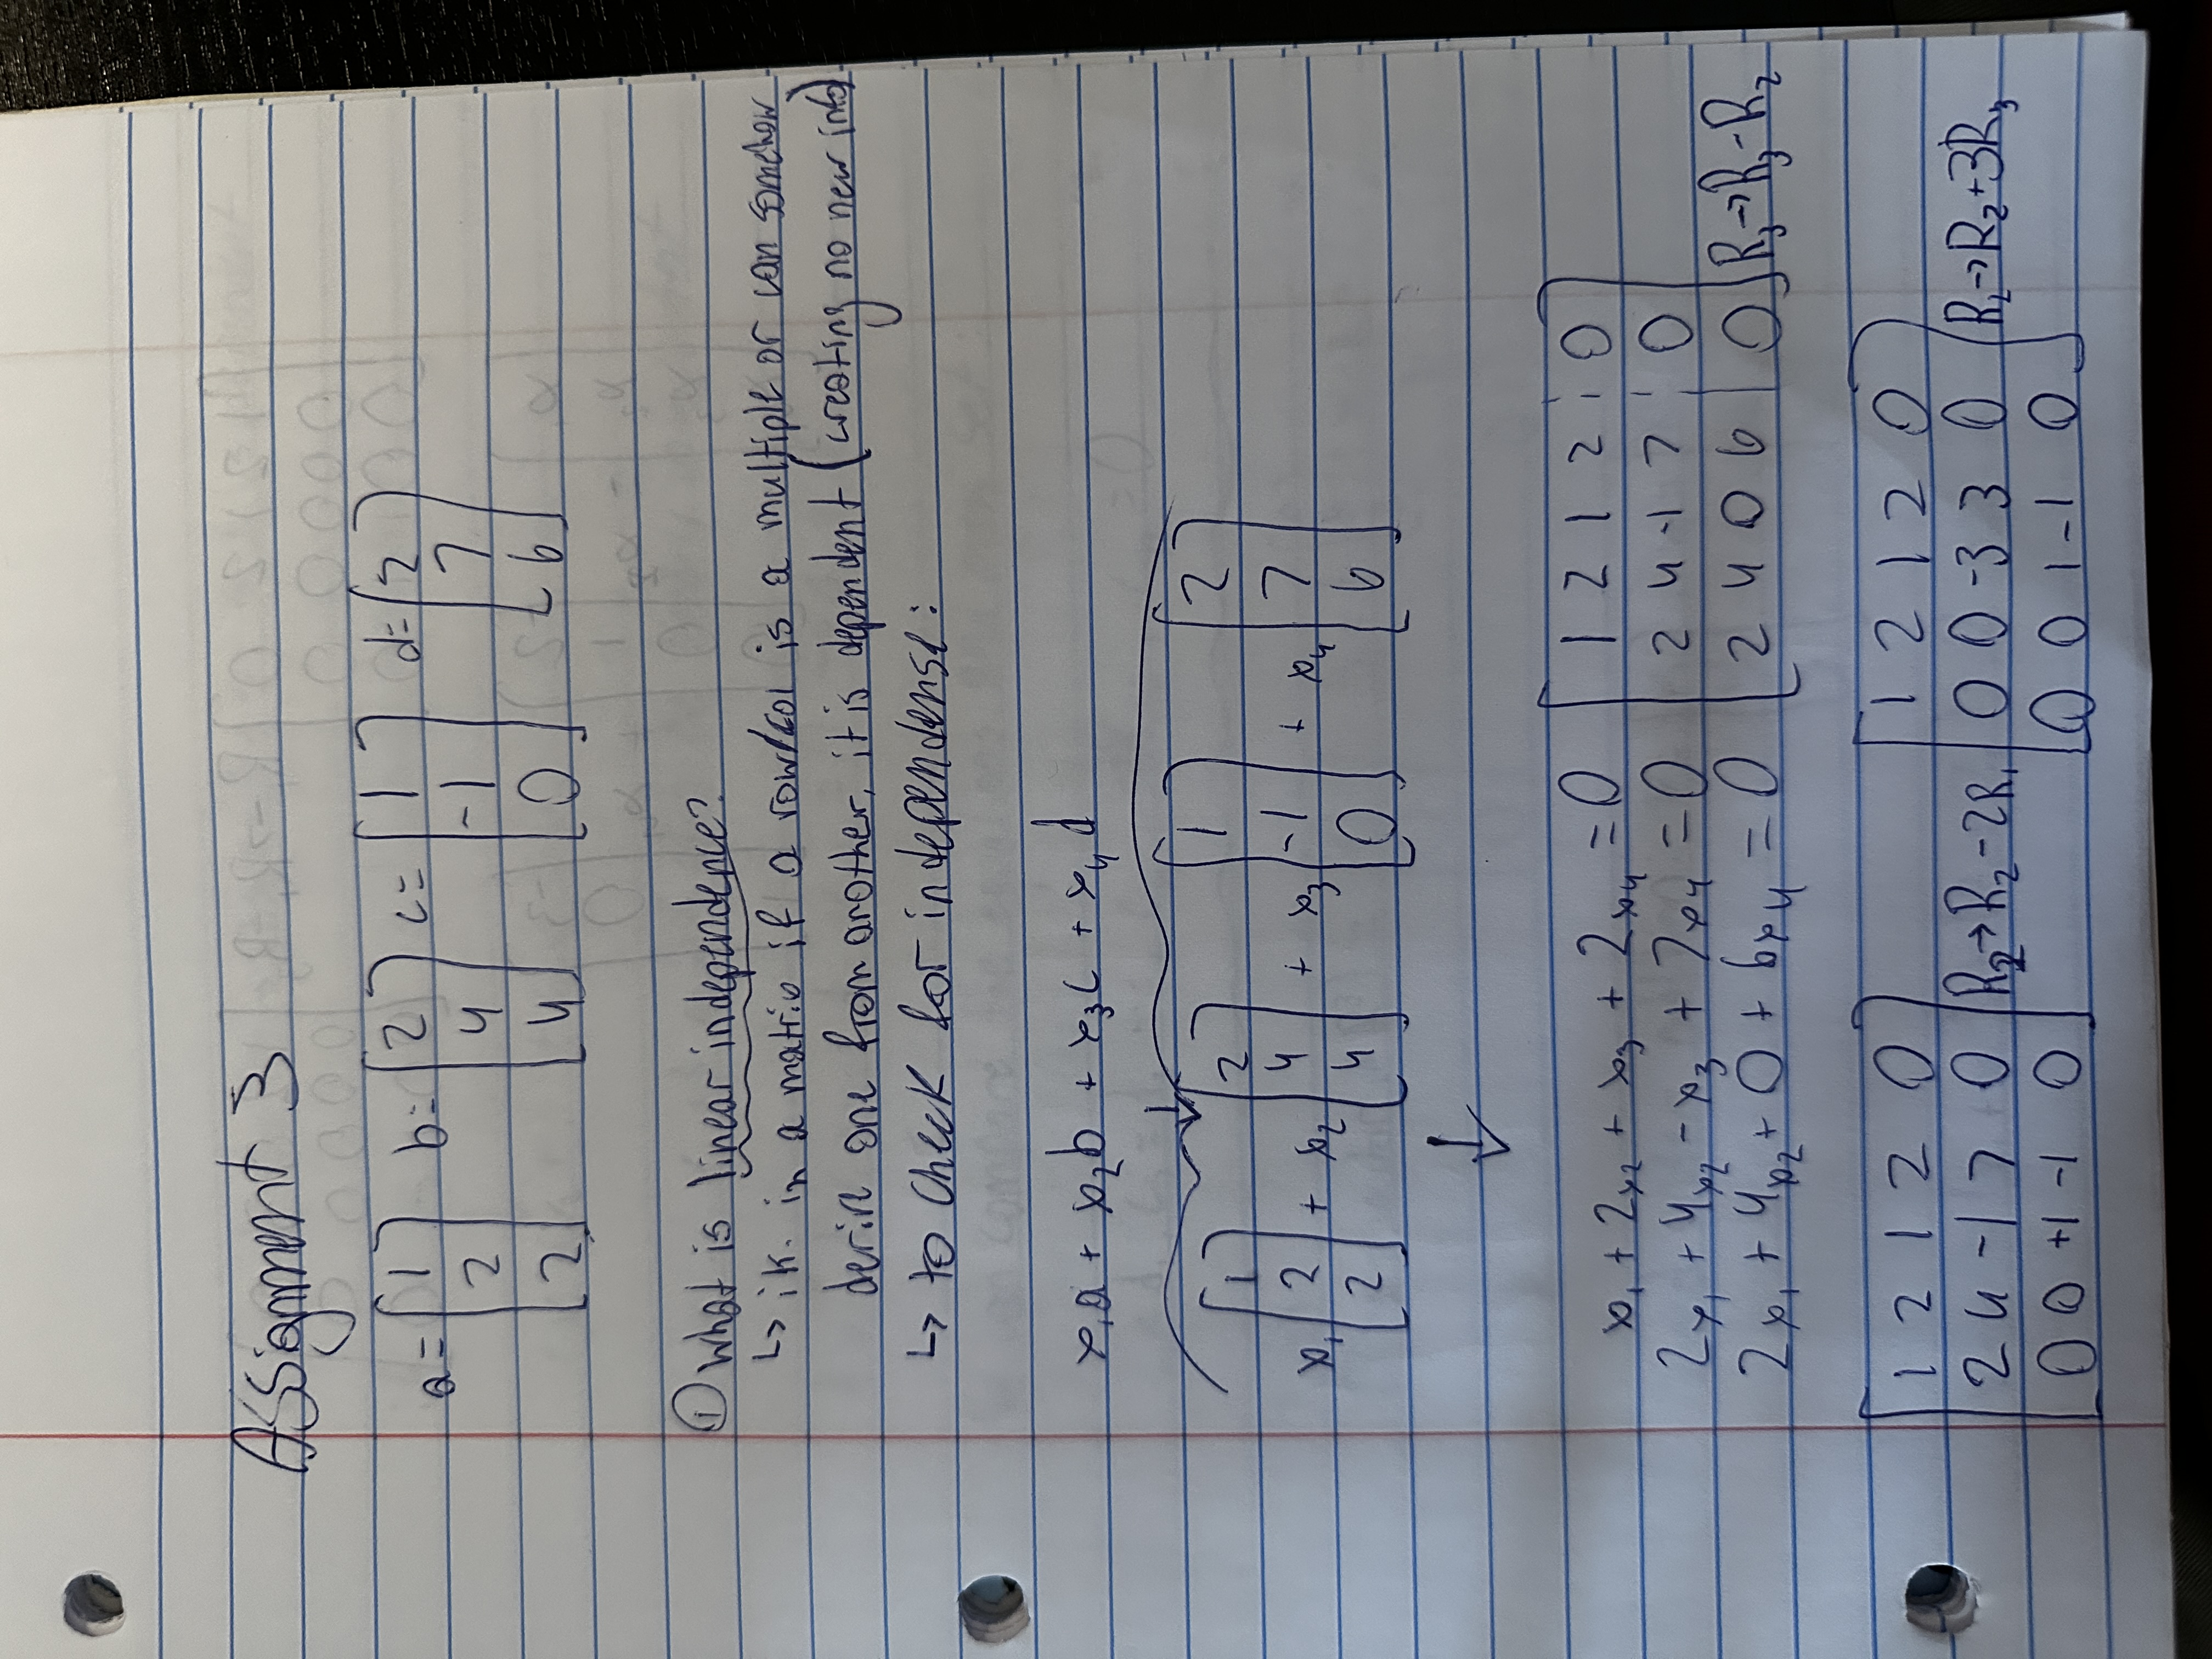 Assignment 3
a = [1 2 2] b = [2 4 4] c = [1 -1 0] d = [2 7 6]
① What is linear independence?
↳ ik. in a matrix if a row/col is a multiple or can somehow
derive one from another, it is dependent (creating no new info)
↳ to check for independense:
x₁a + x₂b + x₃c + x₄d
↓
x₁ [1 2 2] + x₂ [2 4 4] + x₃ [1 -1 0] + x₄ [2 7 6]
↓
x₁ + 2x₂ + x₃ + 2x₄ = 0 [1 2 1 2 | 0
2x₁ + 4x₂ - x₃ + 7x₄ = 0 2 4 -1 7 | 0
2x₁ + 4x₂ + 0 + 6x₄ = 0 2 4 0 6 | 0] R₃→R₃-R₂
[1 2 1 2 0 [1 2 1 2 0
2 4 -1 7 0 R₂→R₂-2R₁ 0 0 -3 3 0 R₂→R₂+3R₃
0 0 +1 -1 0] 0 0 1 -1 0]